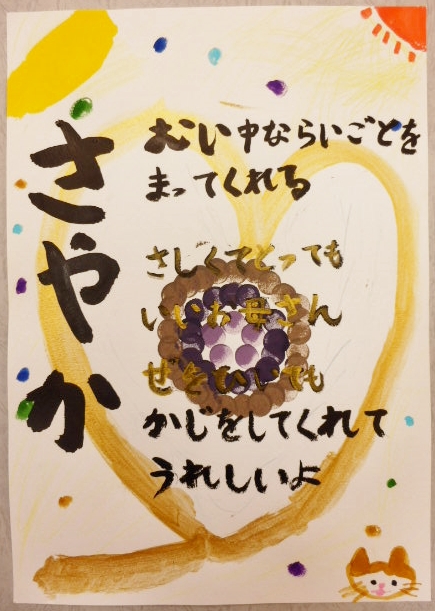 さやか
むい中ならいごとを
まってくれる
さしくてとっても
いいお母さん
ぜをひいても
かじをしてくれて
うれしいよ